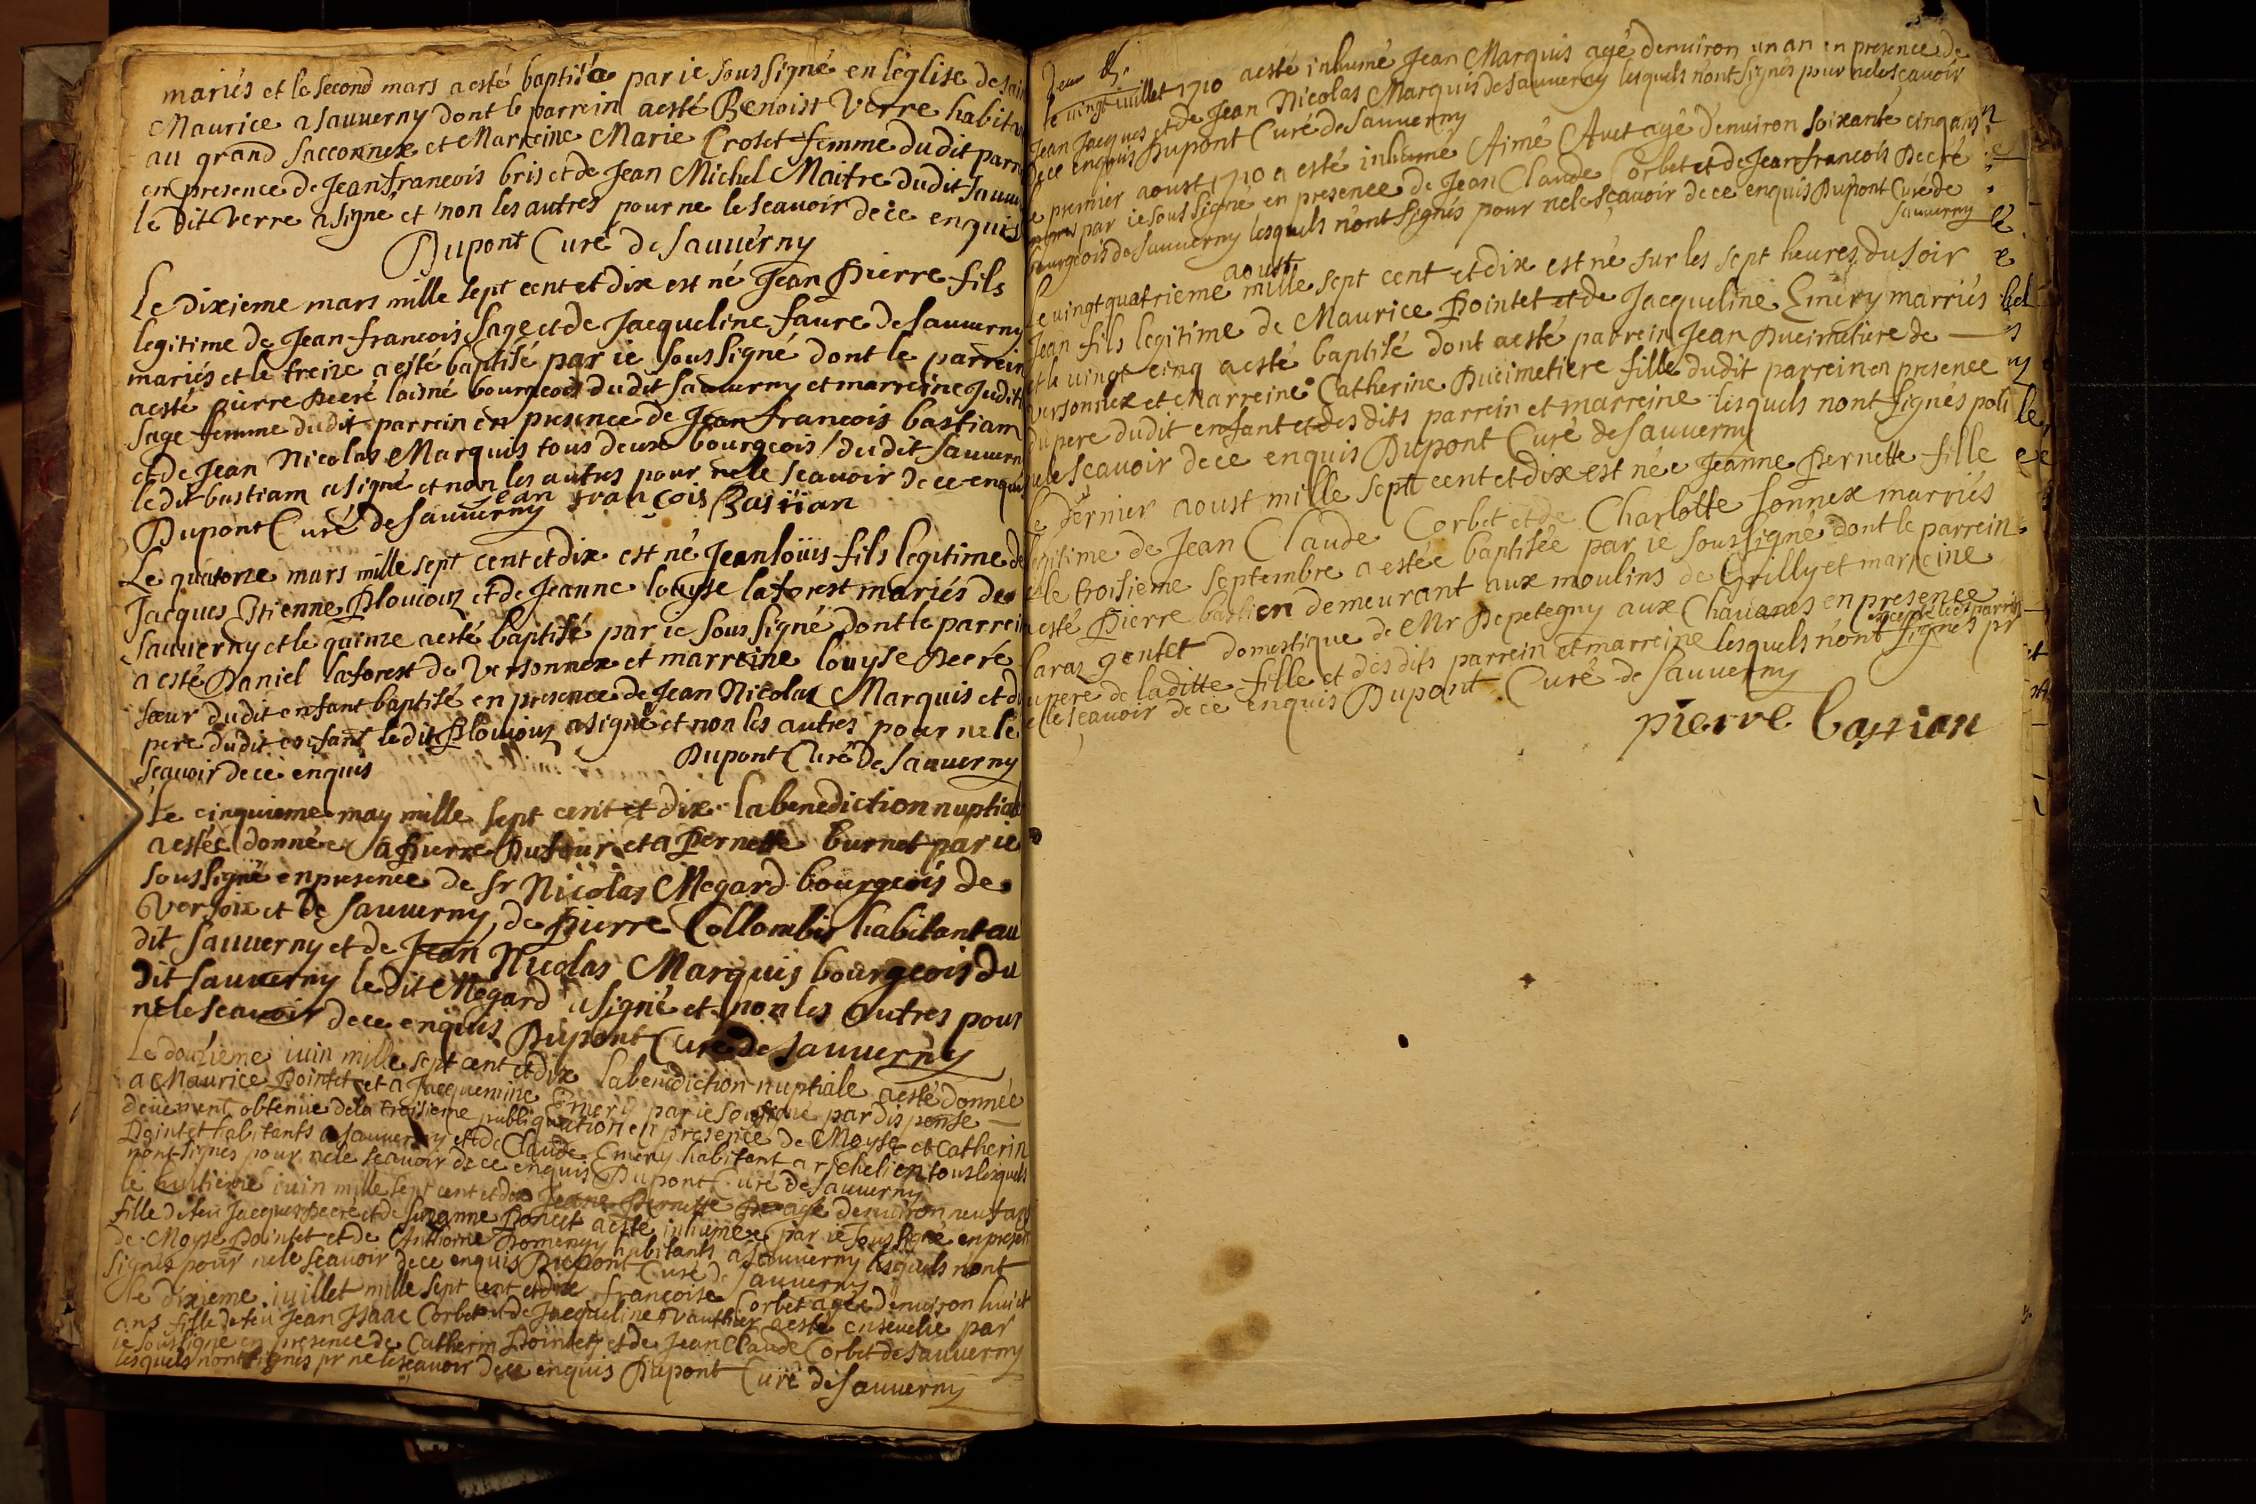 mariés et le second mars a esté baptisée par ie soussigné en l'église de sain
Maurice a sauuerny dont le parrein a esté Benoist Verre habitan
au grand sacconnex et Marreine Marie Croset femme dudit parre
en presence de Jean francois bris et de Jean Michel Maitre dudit sauu
le dit Verre a signé et non les autres pour ne le scauoir de ce enquis
Dupont Curé de Sauuerny
Le dixieme mars mille sept cent et dix est né Jean Pierre fils
legitime de Jean francois Sage et de Jacqueline faure de sauuerny
mariés et le treize a esté baptisé par ie soussigné dont le parrein
a esté Pierre Decré laisné bourgeois dudit sauuerny et marreine Judith
Sage femme dudit parrein en presence de Jean francois bastiam
et de Jean Nicolas Marquis tous deux bourgeois dudit Sauuern
le dit bastiam a signé et non les autres pour ne le scauoir de ce enquis
Dupont Curé de Sauuerny Jean françois Bastian
Le quatorze mars mille sept cent et dix est né Jean loüis fils legitime de
Jacques Etienne Plouiouz et de Jeanne louyse laforest mariés de
Sauuerny et le quinze a esté baptisé par ie soussigné dont le parrein
a esté Daniel laforest de Versonnex et marreine louyse Decre
sœur dudit enfant baptisé en presence de Jean Nicolas Marquis et du
pere dudit enfant le dit Plouiouz a signé et non les autres pour ne le
scauoir de ce enquis Dupont Curé de Sauuerny
Le cinquieme may mille sept cent et dix la benediction nuptiale
a estée donnée a Pierre Dufour et a Pernette burnet par ie
soussigné en presence de sr Nicolas Megard bourgeois de
Versoix et de sauuerny, de Pierre Collombis habitant au
dit Sauuerny et de Jean Nicolas Marquis bourgeois du
dit sauuerny le dit Megard a signé et non les autres pour
ne le scauoir de ce enquis Dupont Curé de sauuerny
Le douzieme iuin mille sept cent et dix la benediction nuptiale a esté donnée
a Maurice Pointet et a Jacquemine Emery par ie soussigné par dispense
deuëment obtenüe de la troisieme publiquation en presence de Moyse et Catherin
Pointet habitants a sauuerny et de Claude Emery habitant a richelien tous lesquels
nont signés pour ne le scauoir de ce enquis Dupont Curé de sauuerny
le huitieme iuin mille sept cent et dix Jeane Pernette agé denuiron neuf ans
fille de feu Jacques Decré et de Suzanne Poncet a esté inhumée par ie soussigné en presen
de Moyse Pointet et de Anthoine Domengy habitants a sauuerny lesquels nont
signés pour ne le scauoir de ce enquis Dupont Curé de sauuerny
le dixieme iuillet mille sept cent et dix françoise Corbet agée denuiron huict
ans fille de feu Jean Isaac Corbet et de Jacqueline Vauthier a esté enseuelie par
ie soussigné en presence de Catherin Pointet et de Jean Claude Corbet de sauuerny
lesquels nont signés pr ne le scauoir de ce enquis Dupont Curé de sauuerny
le vingt iuillet 1710 a esté inhumé Jean Marquis agé denuiron un an en presence de
Jean Jacques et de Jean Nicolas Marquis de sauuerny lesquels n'ont signés pour ne le scauoir
de ce enquis Dupont Curé de Sauuerny
Le premier aoust 1710 a esté inhumé Aimé Auet agé d'enuiron soixante cinq ans
par ie soussigné en presence de Jean Claude Corbet et de Jean francois Decré
bourgeois de sauuerny lesquels n'ont signés pour ne le scauoir de ce enquis Dupont Curé de
sauuerny
aoust
Le vingt quatrieme mille sept cent et dix est né sur les sept heures du soir
Jean fils legitime de Maurice Pointet et de Jacqueline Emery marriés
et le vingt cinq a esté baptisé dont a esté parrein Jean Ducimetiere de
Versonnex et Marreine Catherine Ducimetiere fille dudit parrein en presence
du pere dudit enfant et des dits parrein et marreine lesquels nont signés pour
ne le scauoir de ce enquis Dupont Curé de sauuerny
Le dernier aoust mille sept cent et dix est née Jeanne Pernette fille
legitime de Jean Claude Corbet et de Charlotte Sonnex marriés
et le troisieme septembre a estée baptisée par ie soussigné dont le parrein
a esté Pierre bastien demeurant aux moulins de Grilly et marreine
Saraz gentet domestique de Mr Depetegny aux Chauanes en presence
excepté ledit parrein
du pere de laditte fille et des dits parrein et marreine lesquels n'ont signés pr
ne le scauoir de ce enquis Dupont Curé de Sauuerny
pierre bastian